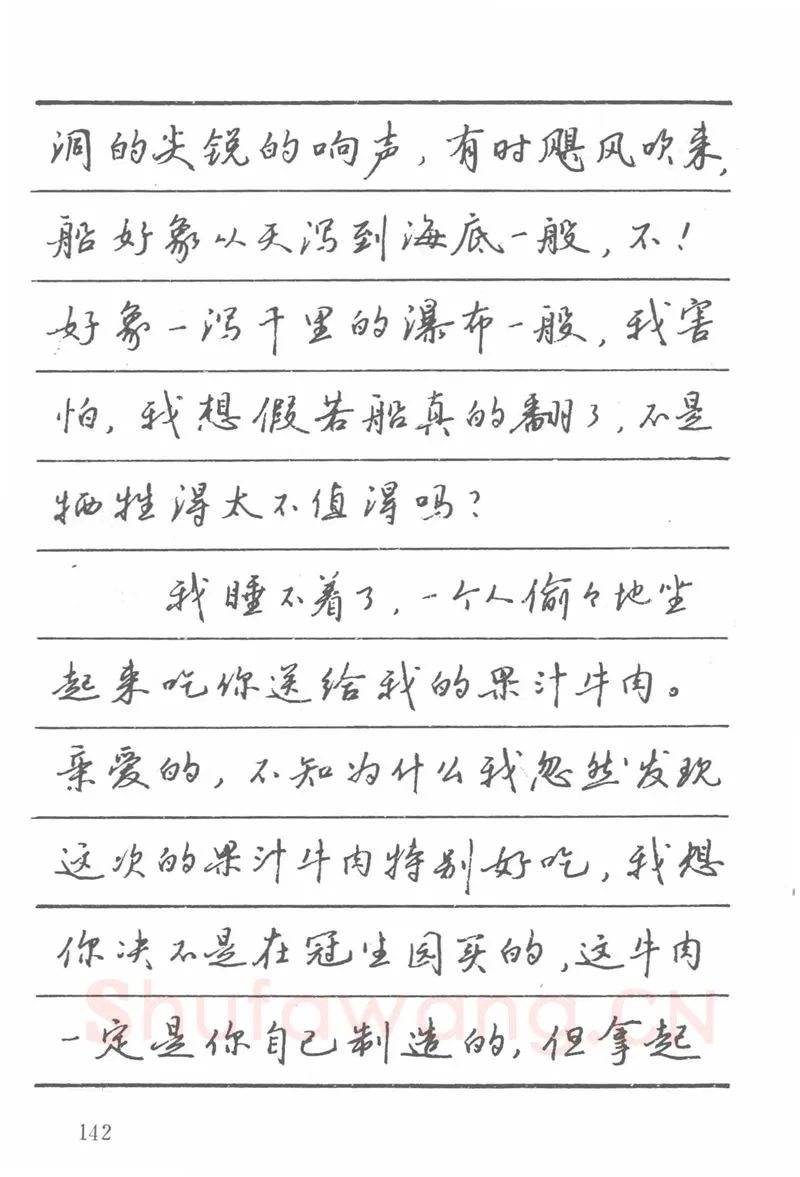 洞的尖锐的响声，有时飓风吹来，
船好象从天泻到海底一般，不！
好象一泻千里的瀑布一般，我害
怕，我想假若船真的翻了，不是
牺牲得太不值得吗？
我睡不着了，一个人偷々地坐
起来吃你送给我的果汁牛肉。
亲爱的，不知为什么我忽然发现
这次的果汁牛肉特别好吃，我想
你决不是在冠生园买的，这牛肉
一定是你自己制造的，但拿起
Shufawang.CN
142